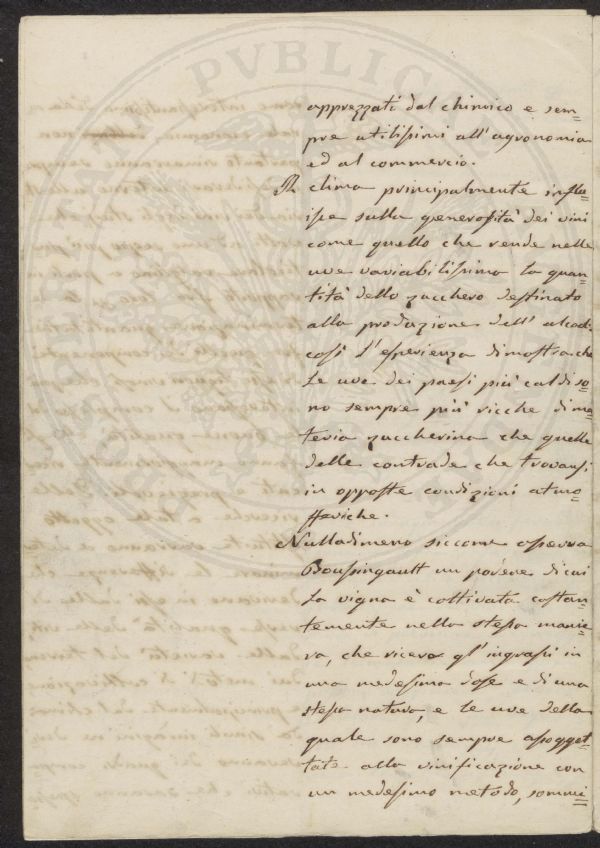 PVBLIC
apprezzati dal chimico e sem=
pre utilissimi all'agronomia
ed al commercio.
Il clima principalmente influ=
isce sulla generosità dei vini
come quello che rende nelle
uve variabilissima la quan=
tità dello zucchero destinato
alla produzione dell'alcool:
così l'esperienza dimostra che
le uve dei paesi più caldi so=
no sempre più ricche di ma=
teria zuccherina che quelle
delle contrade che trovansi
in opposte condizioni atmo=
sferiche.
Nulladimeno siccome osserva
Boussingault un podere di cui
la vigna è coltivata costan=
temente nella stessa manie=
ra, che riceve gl'ingrassi in
una medesima dose e di una
stessa natura, e le uve della
quale sono sempre assogget=
tate alla vinificazione con
un medesimo metodo, sommi=